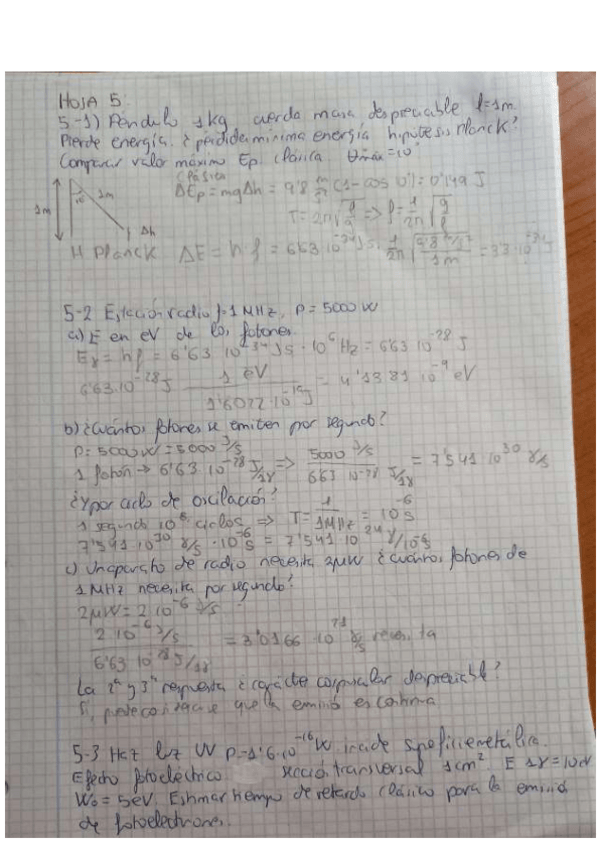 HOJA 5
5-1) Péndulo 1kg cuerda masa despreciable l=1m
Pierde energía. ¿pérdida mínima energía hipótesis Planck?
Comparar valor máximo Ep. clásica θmáx=10°
Clásica
1m
10
1m
Δh
ΔEp = mgΔh = 9'8 (1-cos 10°) = 0'149 J
T = 2π√(l/g) => f = 1/2π √(g/l)
H Planck ΔE = h f = 6'63 10^-34 Js · 1/2π √(9'8 m/s² / 1m) = 3'3·10^-34 J
5-2 Estación radio f=1MHz, P=5000W
a) E en eV de los fotones.
Eγ = hf = 6'63 10^-34 Js · 10^6 Hz = 6'63 10^-28 J
6'63·10^-28 J 1 eV / 1'6022·10^-19 J = 4'1381 10^-9 eV
b) ¿Cuántos fotones se emiten por segundo?
P = 5000W = 5000 J/s
1 fotón → 6'63 10^-28 J/1γ => 5000 J/s / 6'63 10^-28 J/1γ = 7'541 10^30 γ/s
¿Y por ciclo de oscilación?
1 segundo 10^6 ciclos => T = 1/1MHz = 10^-6 s
7'541 10^30 γ/s · 10^-6 s = 7'541·10^24 γ/10^-6 s
c) Un aparato de radio necesita 2μW ¿cuántos fotones de
1MHz necesita por segundo?
2μW = 2 10^-6 J/s
2 10^-6 J/s / 6'63 10^-28 J/1γ = 3'0166 · 10^21 γ/s necesita
La 2ª y 3ª respuesta ¿carácter corpuscular despreciable?
Sí, parece que la emisión es continua
5-3 Haz luz UV P=1'6·10^-16 W incide superficie metálica.
Efecto fotoeléctrico sección transversal 1cm². E 1γ = 10eV
W₀ = 5eV. Estimar tiempo de retardo clásico para la emisión
de fotoelectrones.